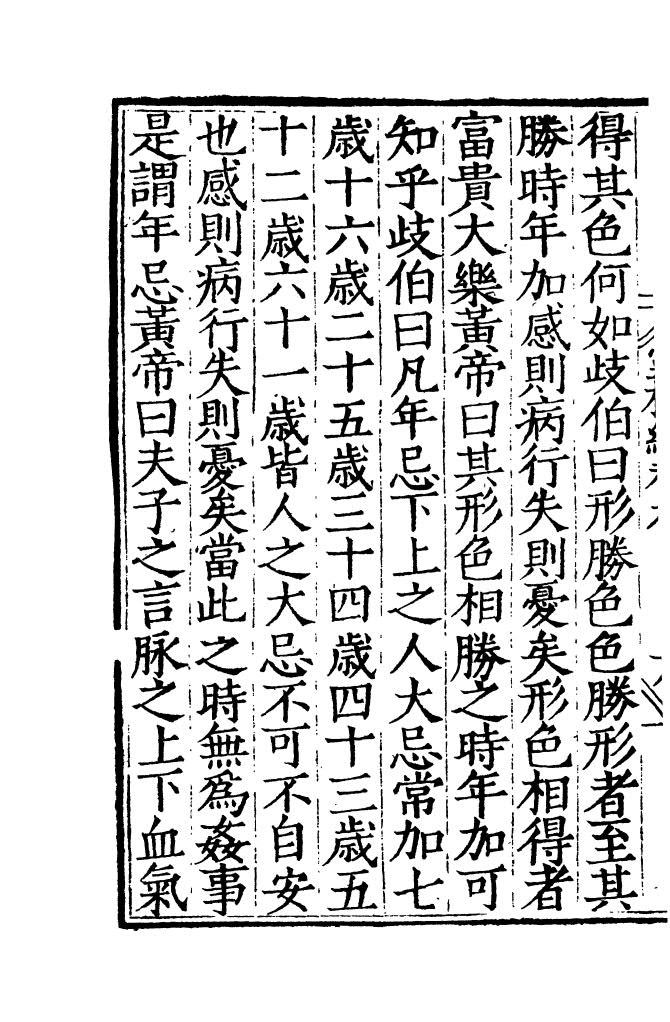 得其色何如歧伯曰形勝色色勝形者至其
勝時年加感則病行失則憂矣形色相得者
富貴大樂黃帝曰其形色相勝之時年加可
知乎歧伯曰凡年忌下上之人大忌常加七
歲十六歲二十五歲三十四歲四十三歲五
十二歲六十一歲皆人之大忌不可不自安
也感則病行失則憂矣當此之時無爲姦事
是謂年忌黃帝曰夫子之言脉之上下血氣